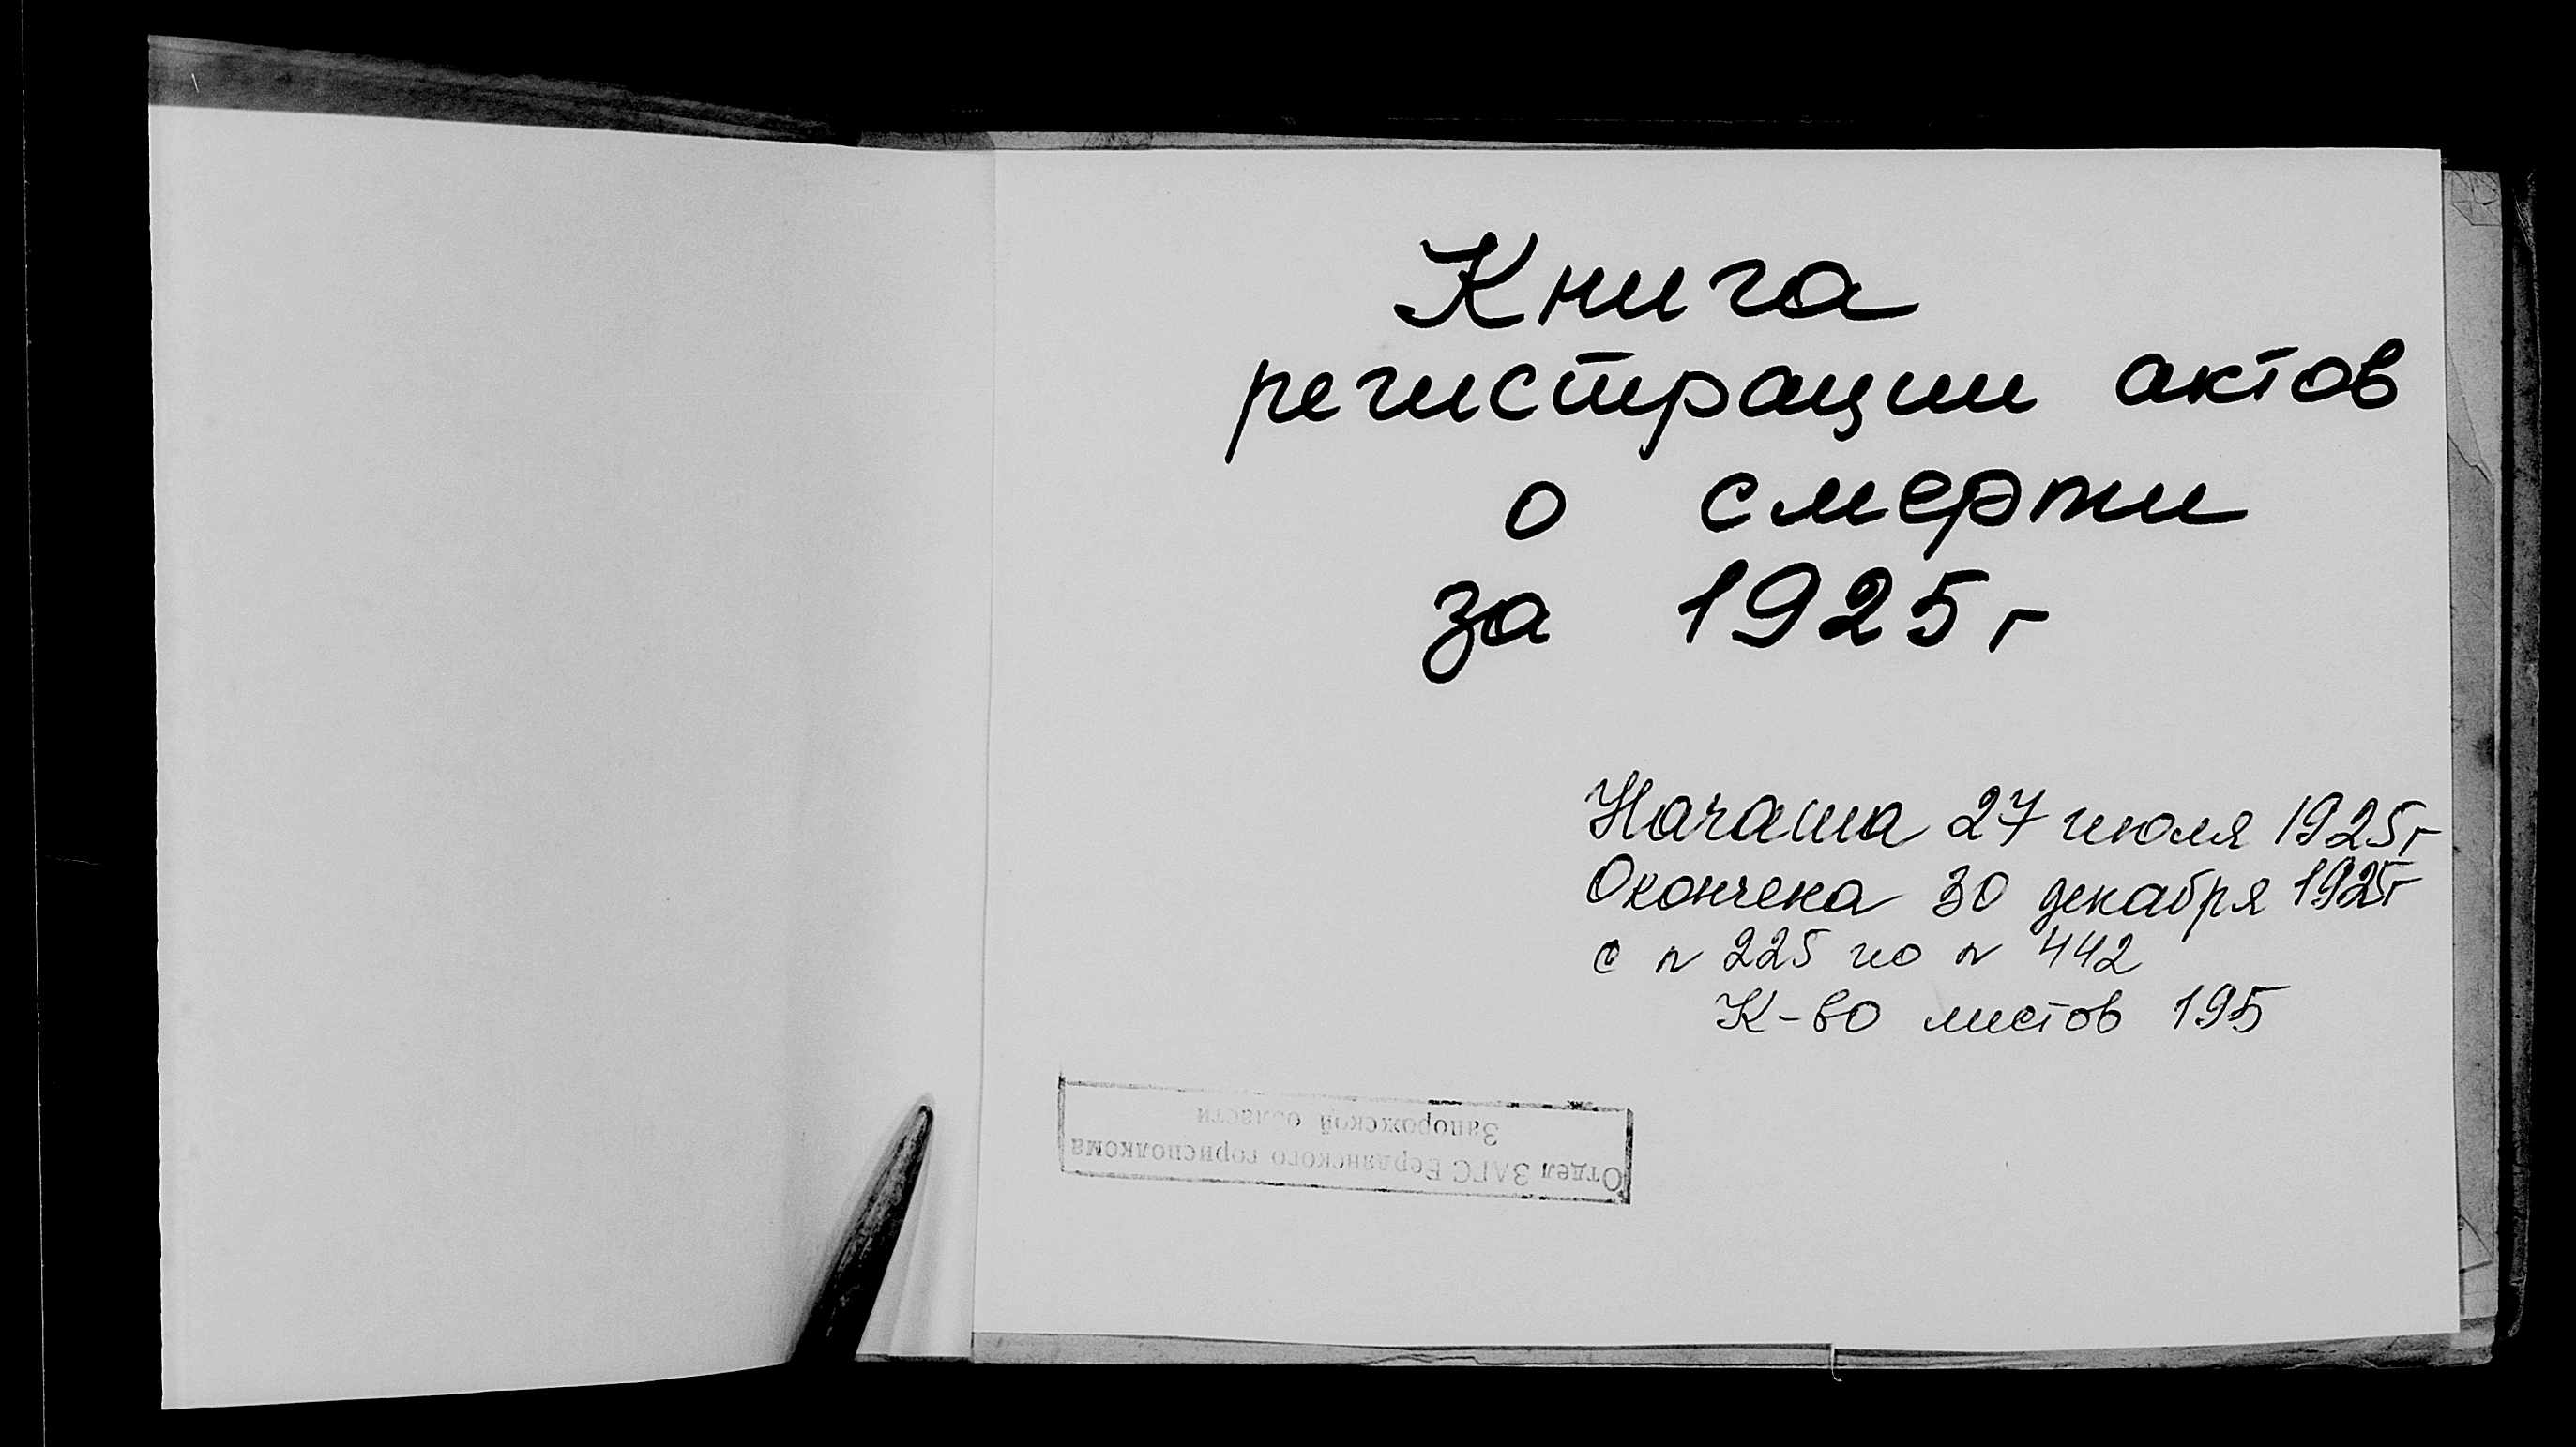 Книга
регистрации актов
о смерти
за 1925 г
Начата 27 июля 1925 г
Окончена 30 декабря 1925 г
с n 225 по n 442
К-во листов 195
Отдел ЗАГС Бердянского горисполкома
Запорожской области